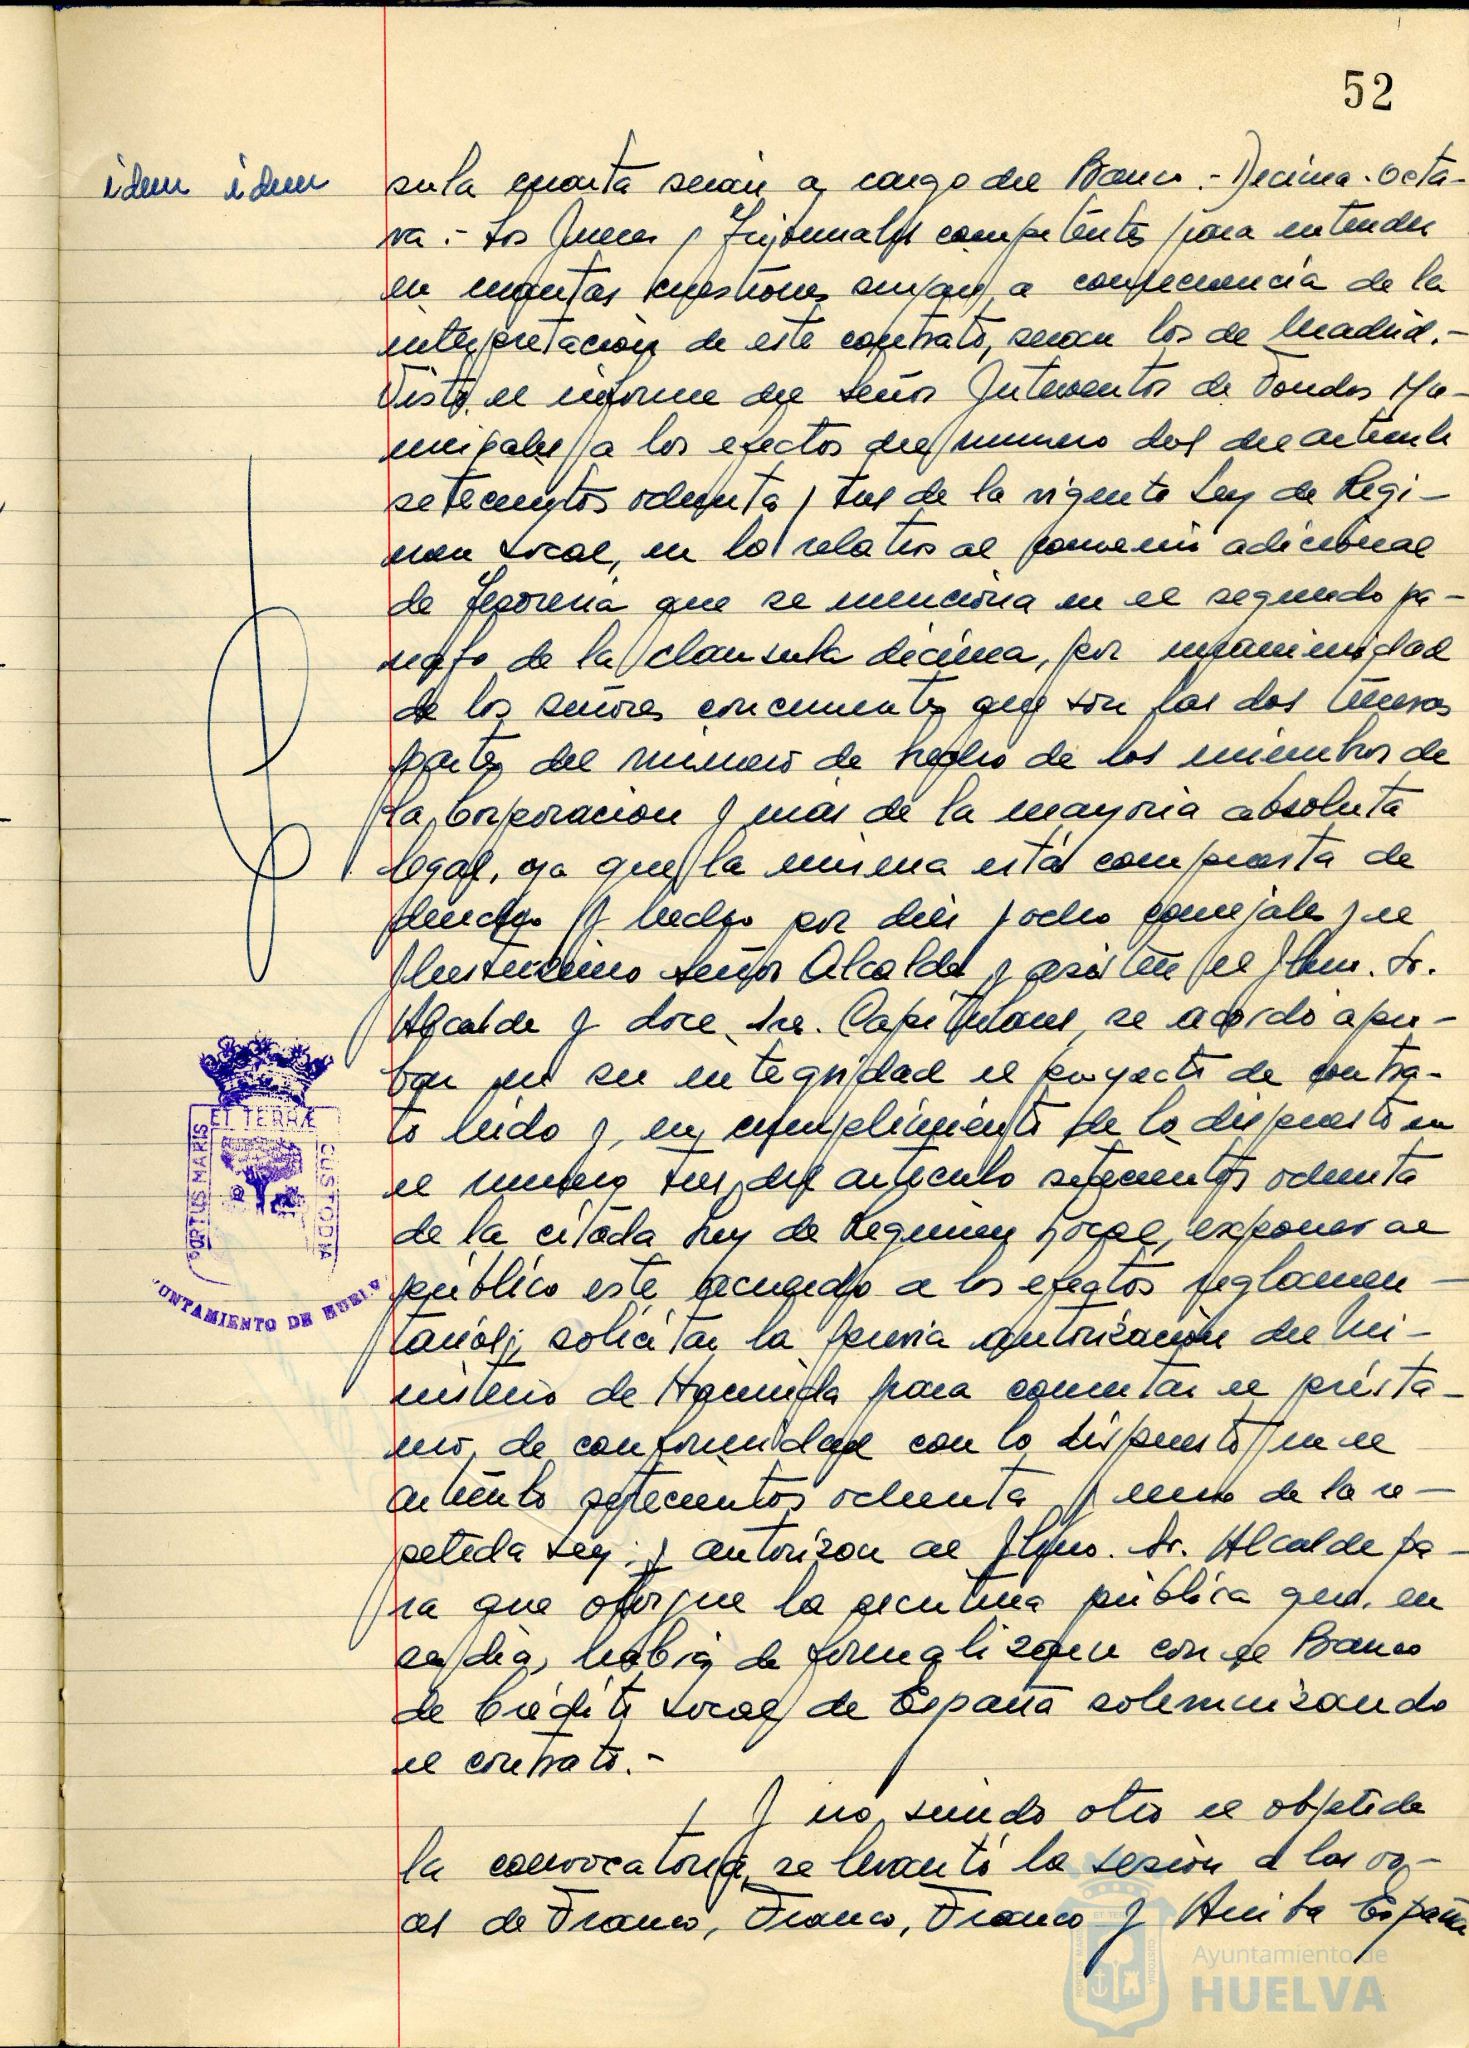 52
idem idem
sula cuarta serán a cargo del Banco.- Décima-octa-
va.- Los Jueces y Tribunales competentes para entender
en cuantas cuestiones surjan a consecuencia de la
interpretación de este contrato, serán los de Madrid.-
Visto el informe del Señor Interventor de Fondos Mu-
nicipales a los efectos del número dos del artículo
setecientos ochenta y tres de la vigente Ley de Régi-
men Local, en lo relativo al convenio adicional
de Tesorería que se menciona en el segundo pá-
rrafo de la clausula décima, por unanimidad
de los señores concurrentes que son las dos terceras
partes del número de hecho de los miembros de
la Corporación y más de la mayoría absoluta
legal, ya que la misma está compuesta de
derecho y hecho por diez y ocho concejales y el
Ilustrísimo Señor Alcalde y asisten el Iltmo. Sr.
Alcalde y doce Sres. Capitulares, se acordó apro-
bar en su integridad el proyecto de contra-
to leido y, en cumplimiento de lo dispuesto en
el número tres del artículo setecientos ochenta
de la citada Ley de Régimen Local, exponer al
público este acuerdo a los efectos reglamen-
tarios; solicitar la previa autorización del Mi-
nisterio de Hacienda para concertar el présta-
mo, de conformidad con lo dispuesto en el
artículo setecientos ochenta y uno de la re-
petida Ley; y autorizar al Iltmo. Sr. Alcalde pa-
ra que otorgue la escritura pública que, en
su día, habrá de formalizarse con el Banco
de Crédito Local de España solemnizando
el contrato.-
Y no siendo otro el objeto de
la convocatoria, se levantó la sesión a las vo-
ces de Franco, Franco, Franco y Arriba España
PORTUS MARIS
ET TERRÆ
CUSTODIA
UNTAMIENTO DE HUELV
Ayuntamiento de
HUELVA